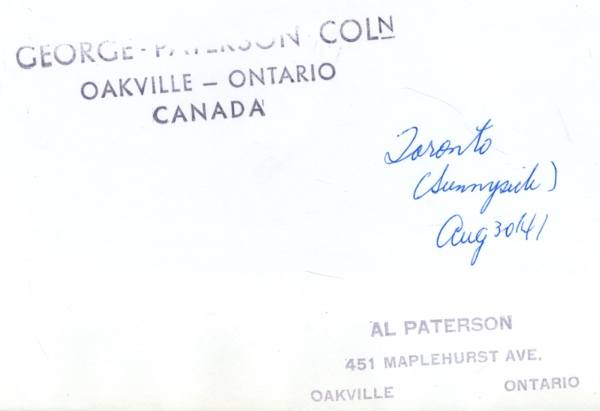 GEORGE - PATERSON COLN
OAKVILLE — ONTARIO
CANADA
Toronto
(Sunnyside)
Aug 30/41
AL PATERSON
451 MAPLEHURST AVE.
OAKVILLE ONTARIO